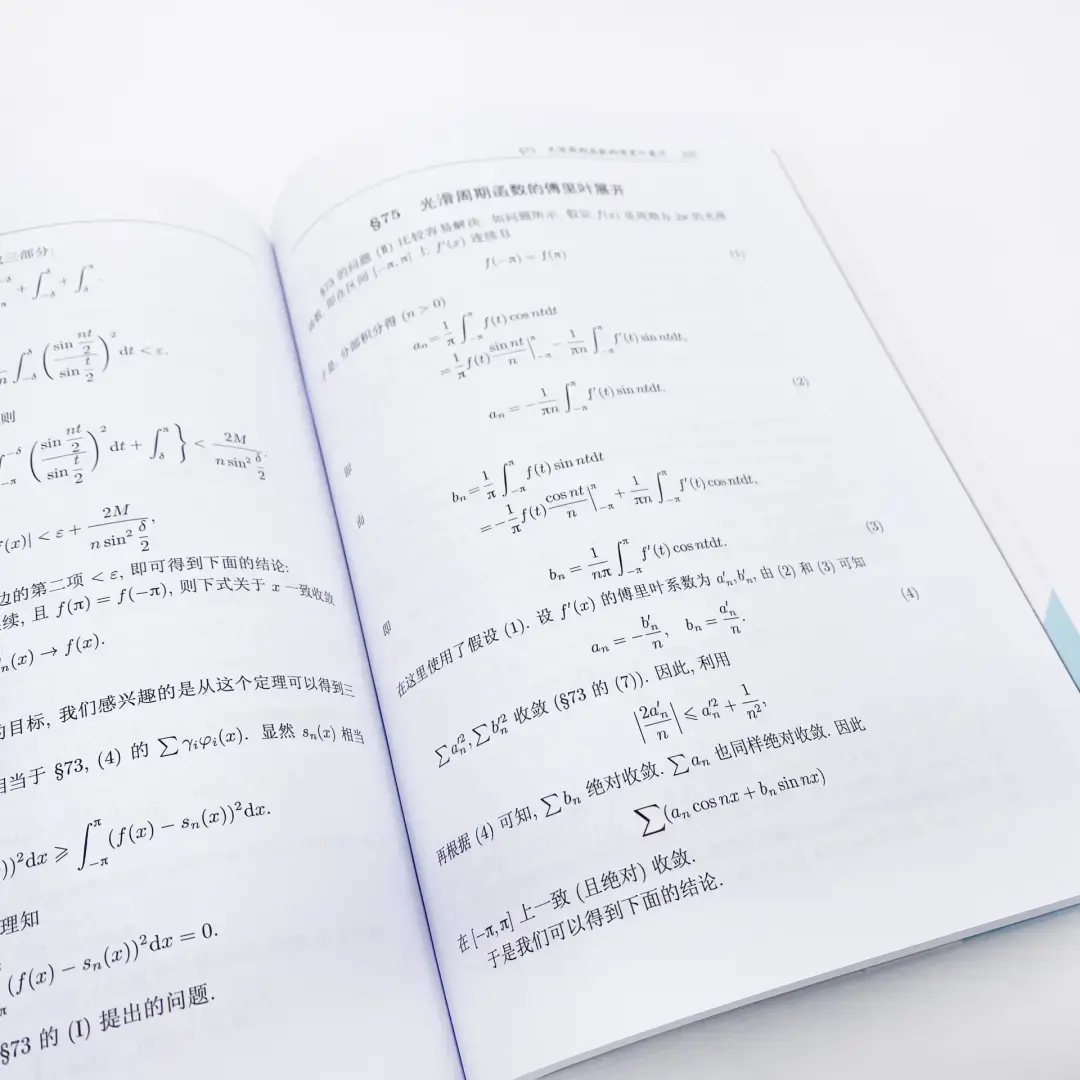 三部分:
+ ∫_{-δ}^{δ} + ∫_{δ}^{π}.
∫_{-δ}^{δ} (sin nt/2 / sin t/2)² dt < ε,
则
∫_{-π}^{-δ} (sin nt/2 / sin t/2)² dt + ∫_{δ}^{π} } < 2M / (n sin² δ/2).
f(x)| < ε + 2M / (n sin² δ/2),
边的第二项 < ε, 即可得到下面的结论:
续, 且 f(π) = f(−π), 则下式关于 x 一致收敛
n(x) → f(x).
的目标, 我们感兴趣的是从这个定理可以得到三
相当于 §73, (4) 的 ∑γᵢφᵢ(x). 显然 sₙ(x) 相当
))²dx ⩾ ∫_{-π}^{π} (f(x) − sₙ(x))²dx.
理知
(f(x) − sₙ(x))²dx = 0.
§73 的 (I) 提出的问题.
§75 光滑周期函数的傅里叶展开
§73 的问题 (II) 比较容易解决. 如问题所示, 假定 f(x) 是周期为 2π 的光滑
函数, 即在区间 [−π, π] 上 f′(x) 连续且
f(−π) = f(π) (1)
于是, 分部积分得 (n > 0)
aₙ = 1/π ∫_{-π}^{π} f(t) cos ntdt
= 1/π f(t) sin nt/n |_{-π}^{π} − 1/πn ∫_{-π}^{π} f′(t) sin ntdt,
即
aₙ = −1/πn ∫_{-π}^{π} f′(t) sin ntdt. (2)
而
bₙ = 1/π ∫_{-π}^{π} f(t) sin ntdt
= −1/π f(t) cos nt/n |_{-π}^{π} + 1/πn ∫_{-π}^{π} f′(t) cos ntdt,
即
bₙ = 1/nπ ∫_{-π}^{π} f′(t) cos ntdt. (3)
在这里使用了假设 (1). 设 f′(x) 的傅里叶系数为 a′ₙ, b′ₙ, 由 (2) 和 (3) 可知
aₙ = −b′ₙ/n, bₙ = a′ₙ/n. (4)
∑a′ₙ², ∑b′ₙ² 收敛 (§73 的 (7)). 因此, 利用
|2a′ₙ/n| ⩽ a′ₙ² + 1/n²,
再根据 (4) 可知, ∑bₙ 绝对收敛. ∑aₙ 也同样绝对收敛. 因此
∑(aₙ cos nx + bₙ sin nx)
在 [−π, π] 上一致 (且绝对) 收敛.
于是我们可以得到下面的结论.